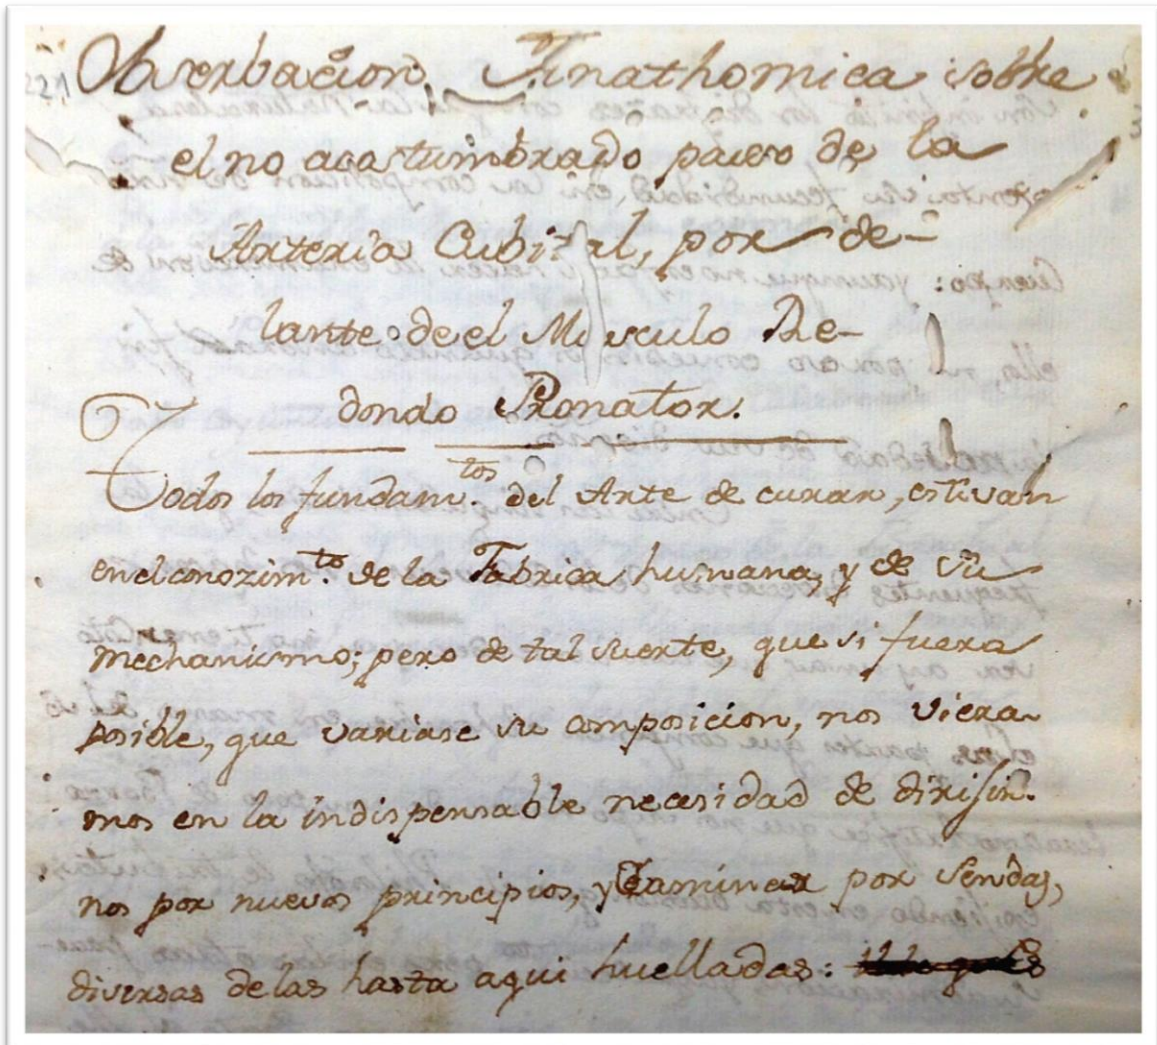 221
Observacion Anathomica sobre
el no acostumbrado paseo de la
Arteria Cubital, por de-
lante de el Musculo Re-
dondo Pronator.
Todos los fundam.tos del Arte de curar, estivan
en el conozim.to de la Fabrica humana, y de su
mechanismo; pero de tal suerte, que si fuera
posible, que variase su composicion, nos viera
mos en la indispensable necesidad de dirijir-
nos por nuevos principios, y Caminar por sendas,
diversas de las hasta aqui huelladas: